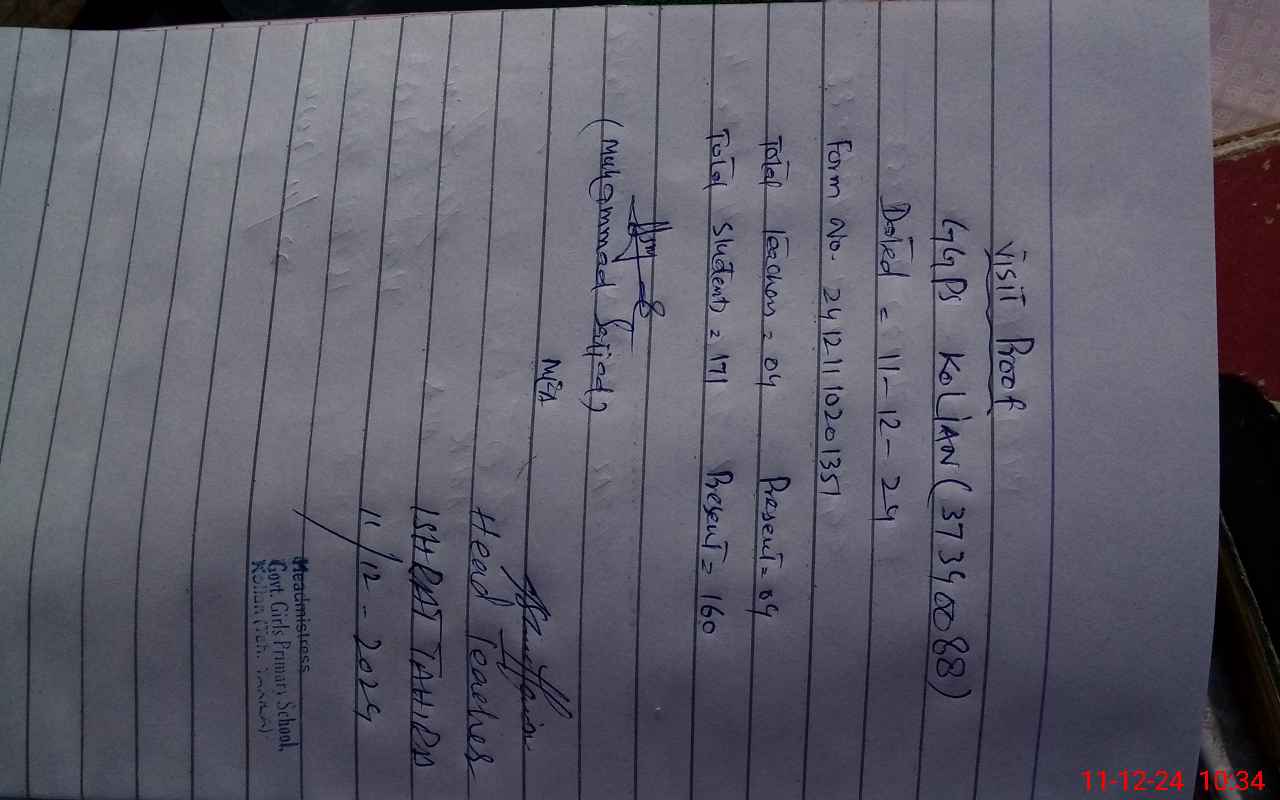 VISIT Proof
GGPS KOLIAN (37340088)
Dated = 11-12-24
Form No. 24121110201351
Total Teachers = 04 Present = 04
Total Students = 171 Present = 160
(Muhammad Sajjad)
Head Teacher
ISHRAT TAHIRA
11/12-2024
Headmistress
Govt. Girls Primary School,
Kolian
11-12-24 10:34